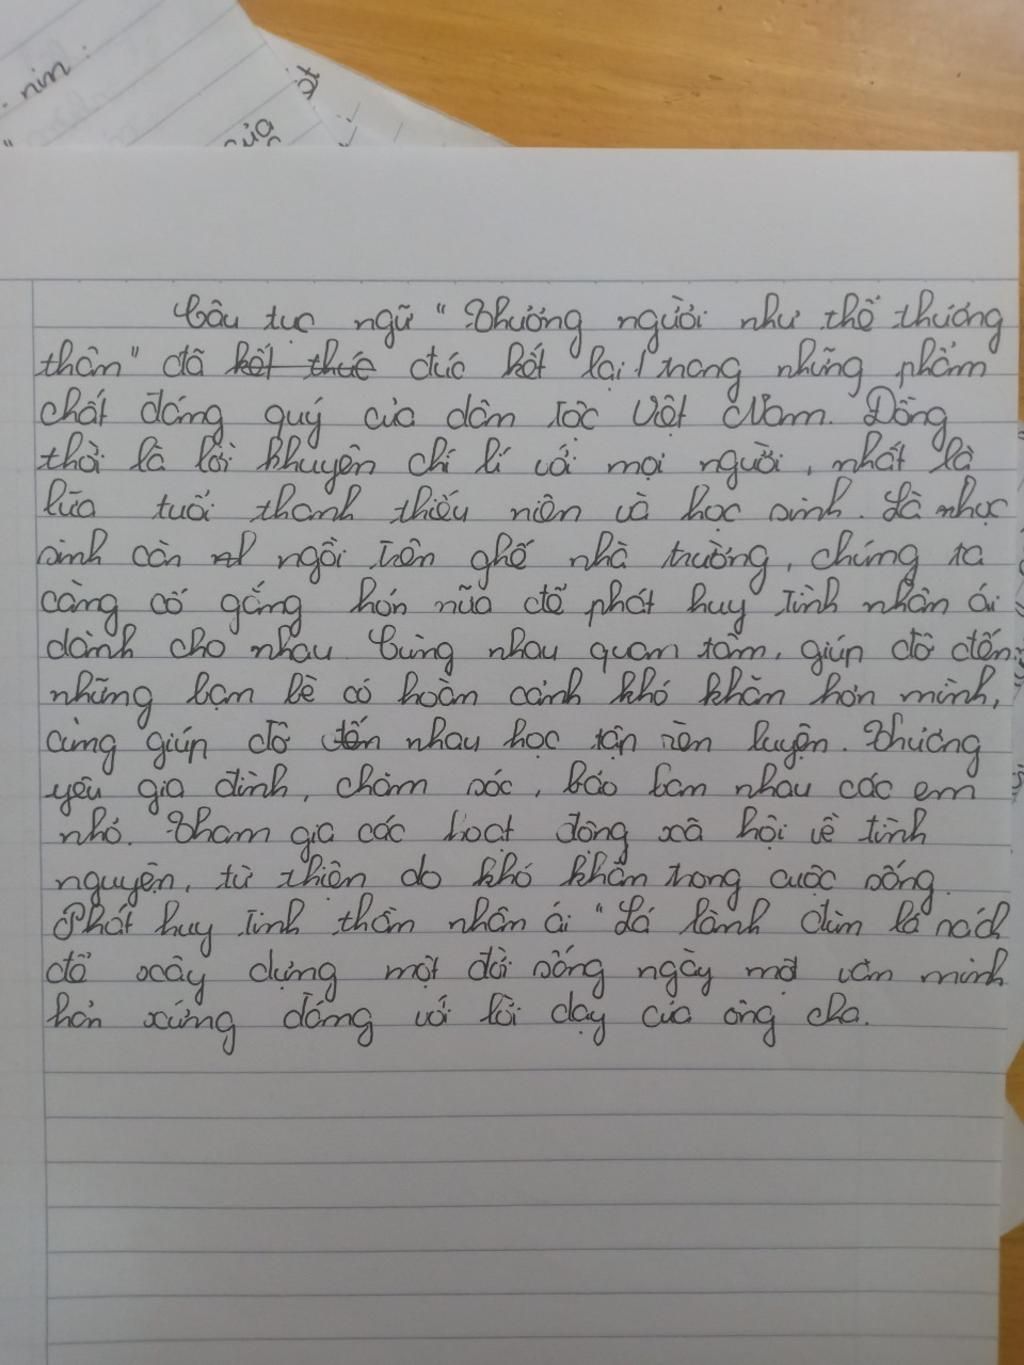 nin :
ột
của
Câu tục ngữ "Thương người như thể thương
thân" đã kết thúc đúc kết lại trong những phẩm
chất đáng quý của dân tộc Việt Nam. Đồng
thời là lời khuyên chí lí với mọi người, nhất là
lứa tuổi thanh thiếu niên và học sinh. Là nhục
sinh còn ngồi trên ghế nhà trường, chúng ta
càng cố gắng hơn nữa để phát huy tình nhân ái
dành cho nhau. Cùng nhau quan tâm, giúp đỡ đến
những bạn bè có hoàn cảnh khó khăn hơn mình,
cùng giúp đỡ đến nhau học tập rèn luyện. Thương
yêu gia đình, chăm sóc, bảo ban nhau các em
nhỏ. Tham gia các hoạt động xã hội về tình
nguyện, từ thiện do khó khăn trong cuộc sống.
Phát huy tinh thần nhân ái "Lá lành đùm lá rách
để xây dựng một đời sống ngày một văn minh
hơn xứng đáng với lời dạy của ông cha.